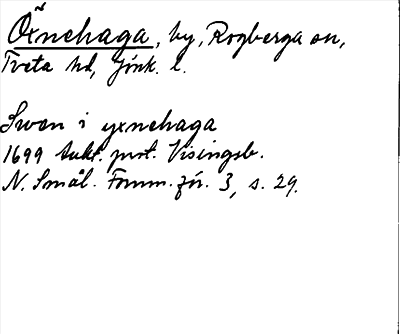 Öxnehaga, by, Rogberga sn,
Tveta hd, Jönk. l.
Swen i yxnehaga
1699 Aukt. prot. Visingsb.
N. Smål. Fornm. för. 3, s. 29.